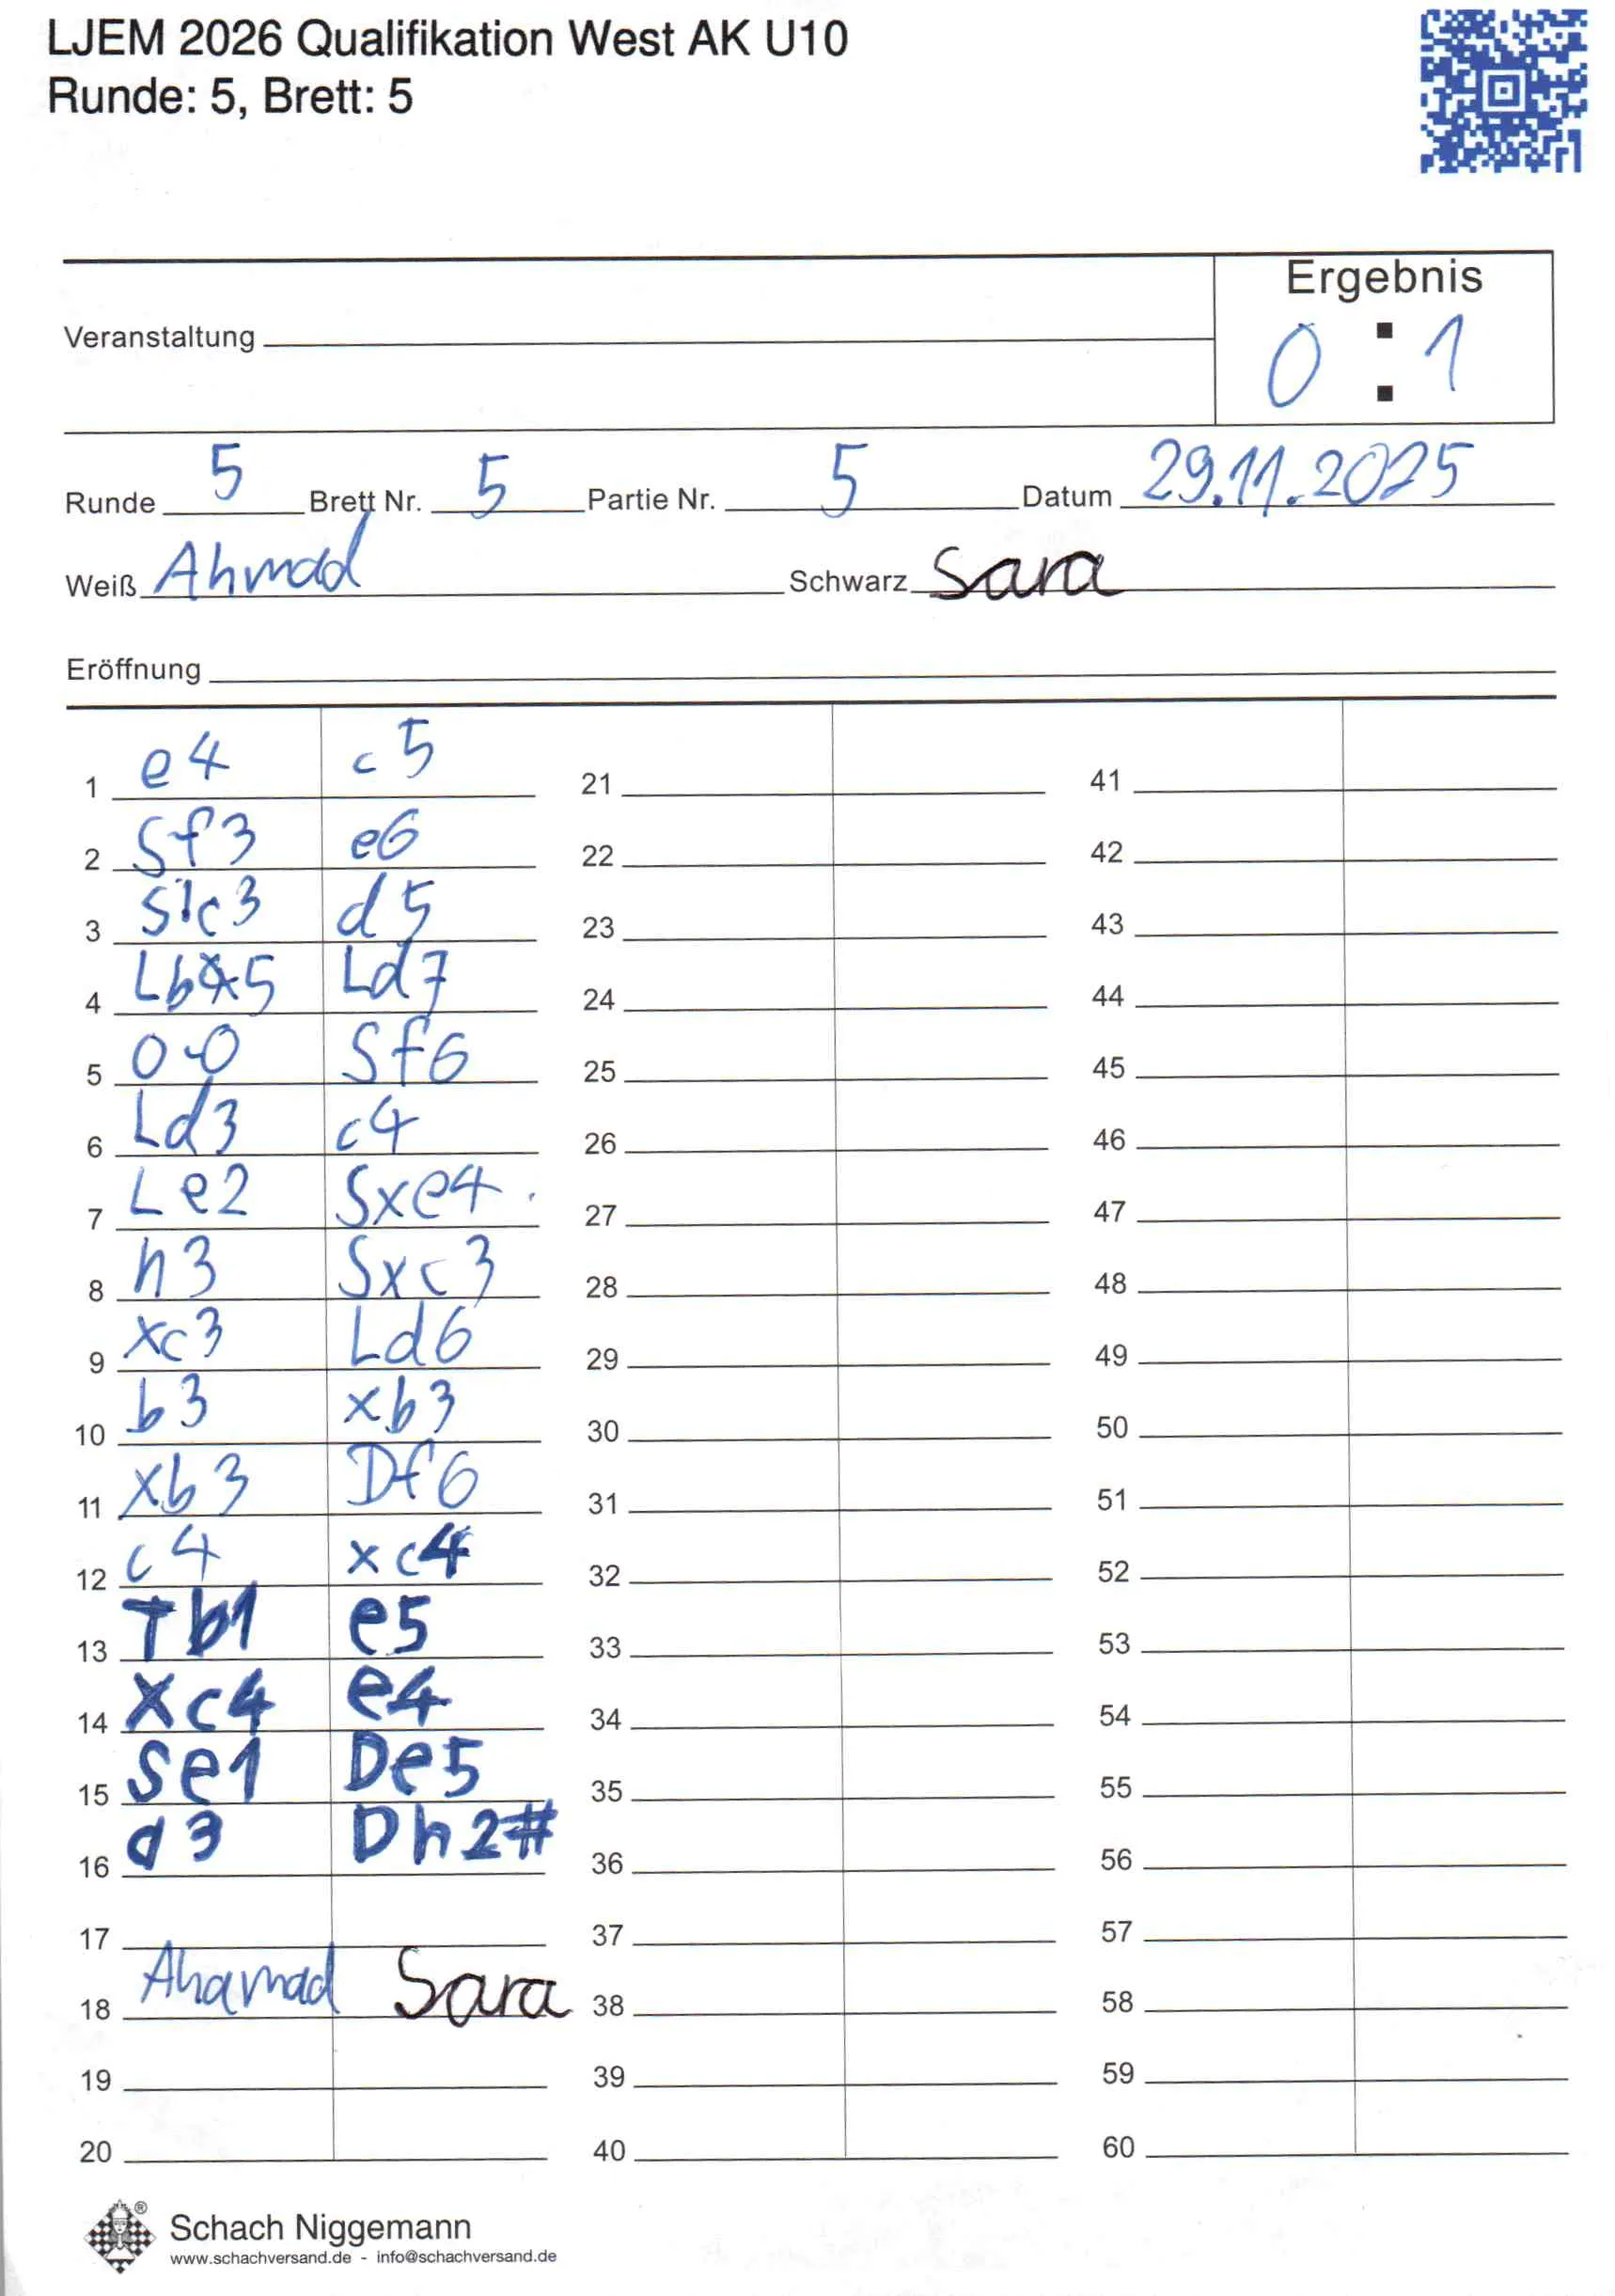 LJEM 2026 Qualifikation West AK U10
Runde: 5, Brett: 5
Ergebnis
Veranstaltung
0 : 1
Runde 5 Brett Nr. 5 Partie Nr. 5 Datum 29.11.2025
Weiß Ahmad Schwarz Sara
Eröffnung
1 e4 c5 21 41
2 Sf3 e6 22 42
3 S1c3 d5 23 43
4 Lb5 Ld7 24 44
5 0-0 Sf6 25 45
6 Ld3 c4 26 46
7 Le2 Sxe4 27 47
8 h3 Sxc3 28 48
9 xc3 Ld6 29 49
10 b3 xb3 30 50
11 xb3 Df6 31 51
12 c4 xc4 32 52
13 Tb1 e5 33 53
14 xc4 e4 34 54
15 Se1 De5 35 55
16 d3 Dh2# 36 56
17 37 57
18 Ahamad Sara 38 58
19 39 59
20 40 60
® Schach Niggemann
www.schachversand.de - info@schachversand.de